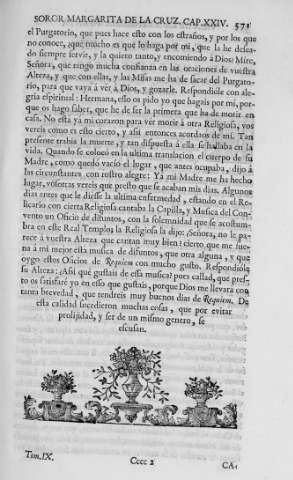 SOROR MARGARITA DE LA CRUZ. CAP. XXIV. 571
el Purgatorio, que pues hace esto con los estraños, y por los que
no conoce, que mucho es que lo haga por mi, que la he desea-
do siempre servir, y la quiero tanto, y encomiendo à Dios: Mire,
Señora, que tengo mucha confianza en las oraciones de vuestra
Alteza, y que con ellas, y las Missas me ha de sacar del Purgato-
rio, para que vaya à vèr à Dios, y gozarle. Respondiòle con ale-
gria espiritual: Hermana, esso os pido yo que hagais por mi, por-
que os hago saber, que he de ser la primera que ha de morir en
casa. No està yà mi corazon para vèr morir à otra Religiosa, vos
vereis como es esto cierto, y assi entonces acordaos de mi. Tan
presente traìa la muerte, y tan dispuesta à ella se hallaba en la
vida. Quando se colocò en la ultima translacion el cuerpo de su
Madre, como quedò vacìo el lugar, que antes ocupaba, dijo à
las circunstantes con rostro alegre: Yà mi Madre me ha hecho
lugar, vosotras vereis que presto que se acaban mis dias. Algunos
dias antes que le diesse la ultima enfermedad, estando en el Re-
licario con cierta Religiosa cantaba la Capilla, y Musica del Con-
vento un Oficio de difuntos, con la solemnidad que se acostum-
bra en este Real Templo; la Religiosa la dijo: Señora, no le pa-
rece à vuestra Alteza que cantan muy bien? cierto, que me sue-
na à mi mejor esta musica de difuntos, que otra alguna, y que
oygo estos Oficios de Requiem con mucho gusto. Respondiòla
su Alteza: Assi que gustais de essa musica? pues callad, que pres-
to os satisfarè yo en esso que gustais, porque Dios me llevarà con
tanta brevedad, que tendreis muy buenos dias de Requiem. De
esta calidad sucedieron muchas cosas, que por evitar
prolijidad, y ser de un mismo genero, se
escusan.
Tom. IX.
Cccc 2
CA-